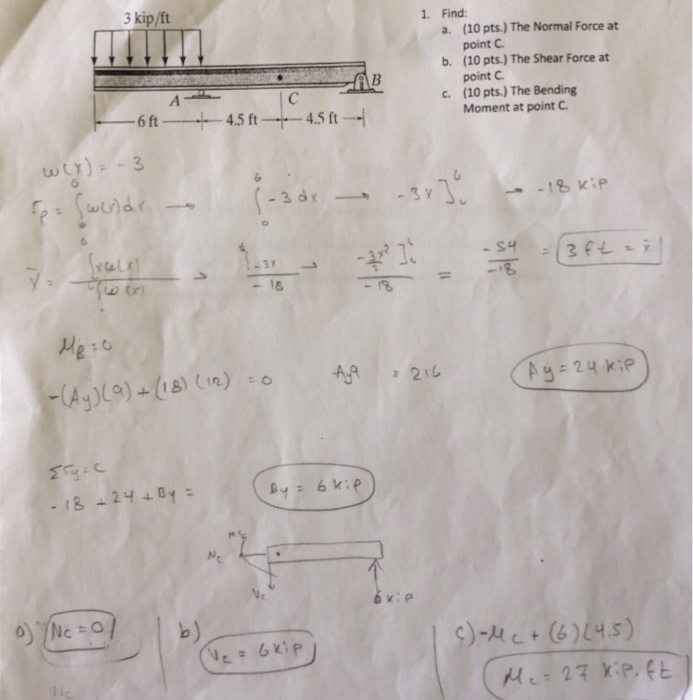 3 kip/ft
A
B
C
6 ft
4.5 ft
4.5 ft
1. Find:
a. (10 pts.) The Normal Force at
point C.
b. (10 pts.) The Shear Force at
point C.
c. (10 pts.) The Bending
Moment at point C.
w(x) = -3
F_R = ∫₀⁶ w(x) dx → ∫₀⁶ -3 dx → -3x ]₀⁶ → -18 kip
x̄ = → ∫ -3x / -18 → -3x²/2 ]₀⁶ / -18 = -54 / -18 = 3 ft = x̄
M_B = 0
-(Ay)(9) + (18)(12) = 0 Ay9 = 216 Ay = 24 kip
ΣFy = 0
-18 + 24 + By = By = 6 kip
Mc
Nc
Vc
6 kip
a) Nc = 0
b) Vc = 6 kip
c) -Mc + (6)(4.5)
Mc = 27 kip.ft
Nc